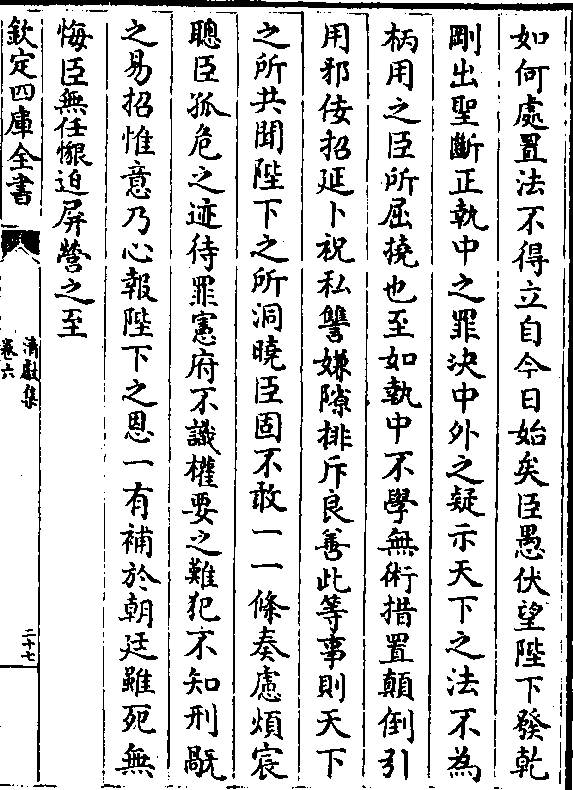 如何處置法不得立自今日始矣臣愚伏望陛下發乾
剛出聖斷正執中之罪決中外之疑示天下之法不為
柄用之臣所屈撓也至如執中不學無術措置顛倒引
用邪佞招延卜祝私讐嫌隙排斥良善此等事則天下
之所共聞陛下之所洞曉臣固不敢一一條奏慮煩宸
聰臣孤危之迹待罪憲府不識權要之難犯不知刑辟
之易招惟意乃心報陛下之恩一有補於朝廷雖死無
悔臣無任懇迫屏營之至
欽定四庫全書
清獻集
卷六
二十七